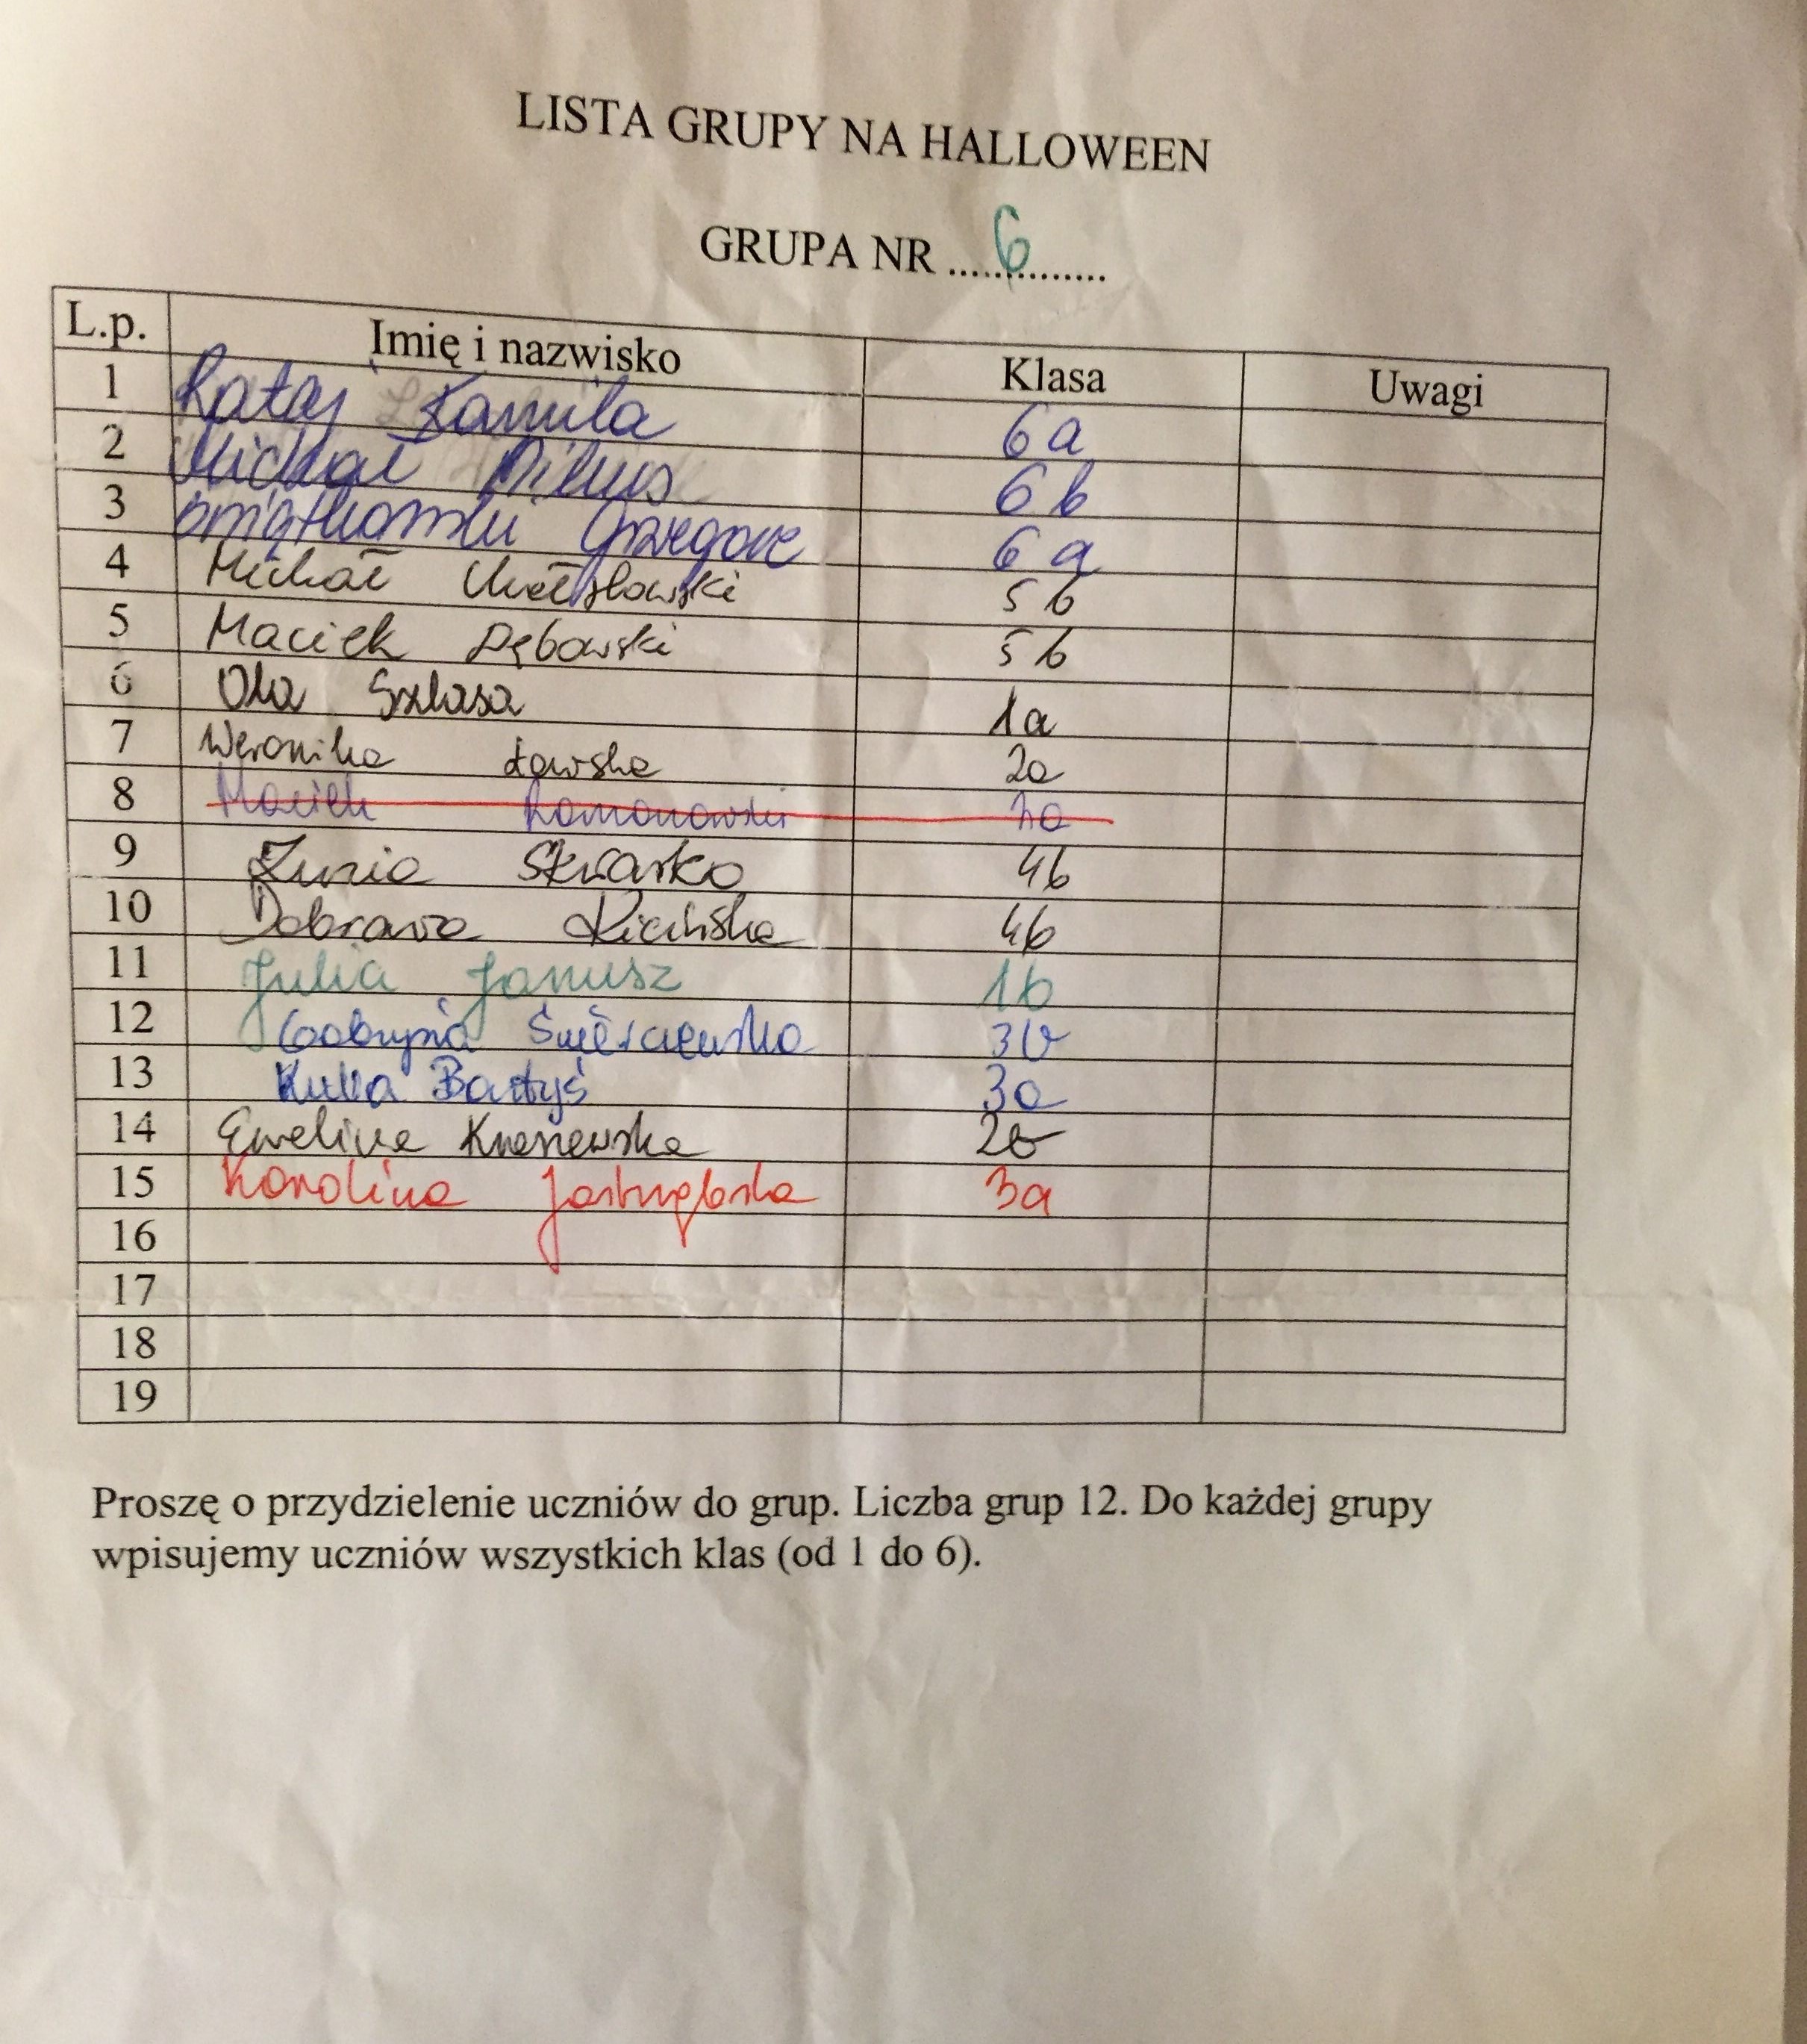 LISTA GRUPY NA HALLOWEEN
GRUPA NR .............. 6
L.p. Imię i nazwisko Klasa Uwagi
1 Rataj Kamila 6a
2 Michał Pikus 6b
3 Grzegorz 6a
4 Michał 5b
5 Maciek Dębowski 5b
6 Ola Szlasa 1a
7 Weronika Ławska 2a
8 Maciek Romanowski
9 Zuzia Skwarko 4b
10 Dobrawa 4b
11 Julia Janusz 1b
12 Gabrysia Świerczewska 3b
13 Kuba Bartyś 3a
14 Ewelina 2b
15 Karolina Jastrzębska 3a
16
17
18
19
Proszę o przydzielenie uczniów do grup. Liczba grup 12. Do każdej grupy
wpisujemy uczniów wszystkich klas (od 1 do 6).